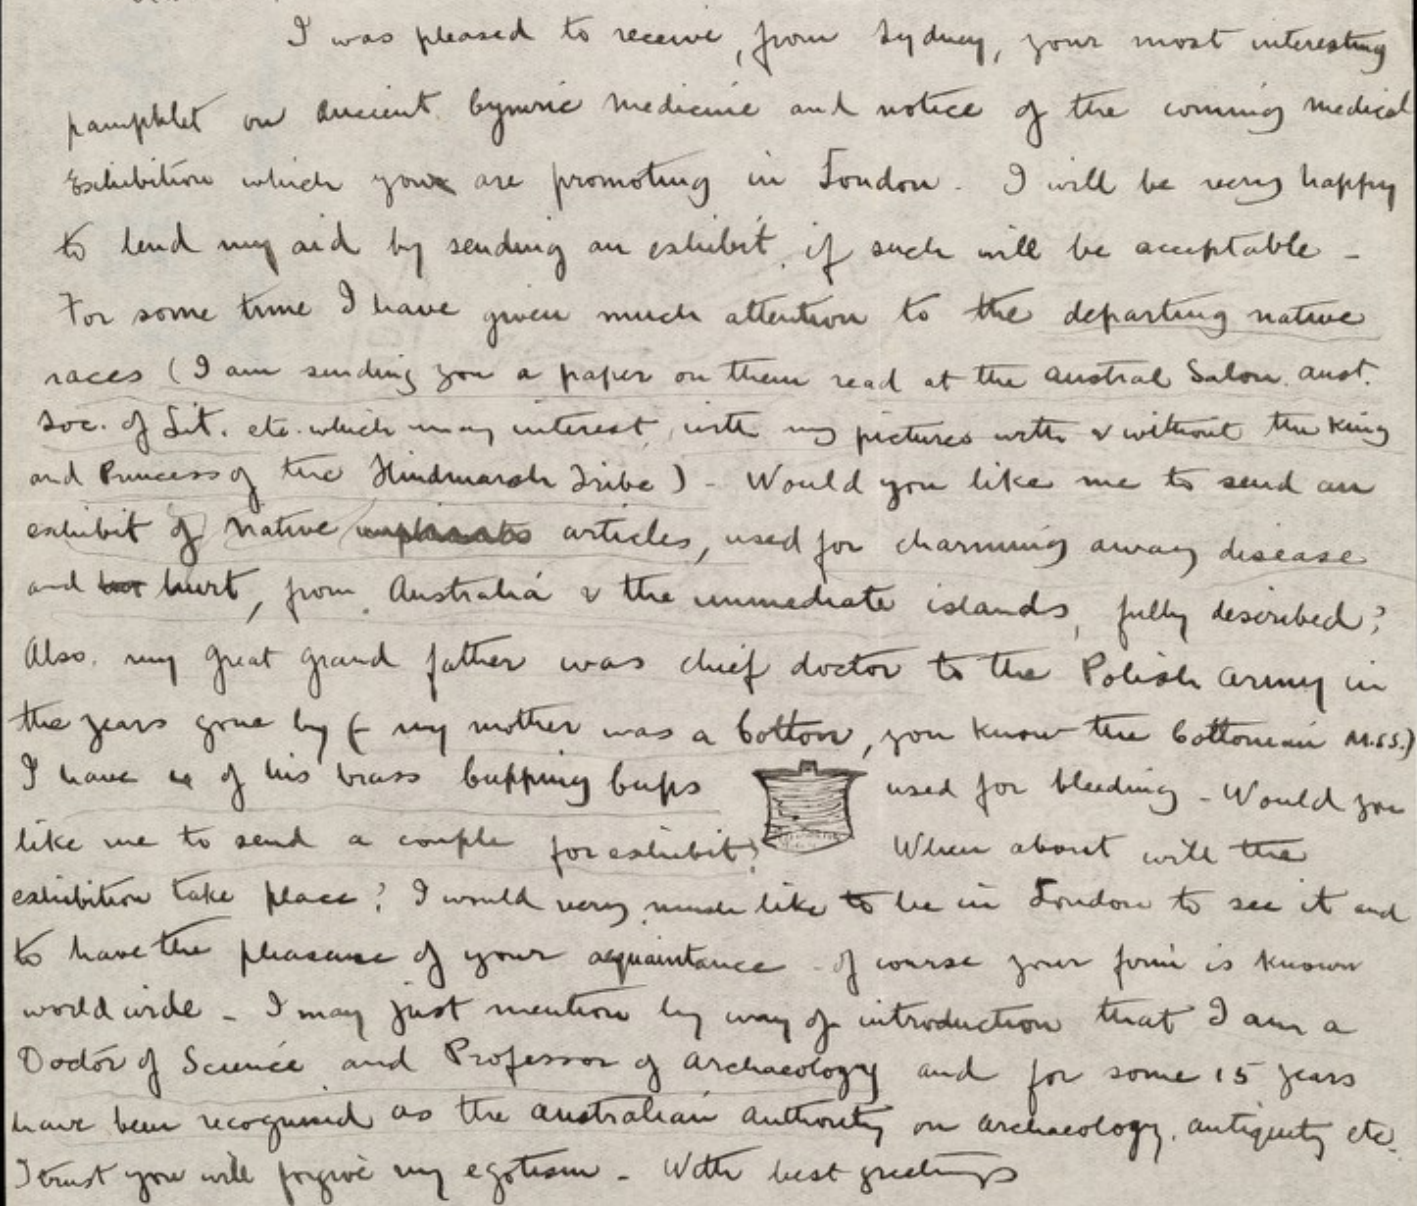 I was pleased to receive, from Sydney, your most interesting
pamphlet on Ancient Cymric Medicine and notice of the coming Medical
Exhibition which you are promoting in London. I will be very happy
to lend my aid by sending an exhibit, if such will be acceptable -
For some time I have given much attention to the departing native
races (I am sending you a paper on them read at the Austral Salon, Aust.
Soc. of Lit. etc. which may interest, with my pictures with & without the King
and Princess of the Hindmarsh Tribe) - Would you like me to send an
exhibit of Native articles, used for charming away disease
and hurt, from Australia & the immediate islands, fully described?
Also, my great grand father was chief doctor to the Polish Army in
the years gone by (- my mother was a Cotton, you know the Cottonian M.SS.)
I have of his brass Cupping Cups used for bleeding - Would you
like me to send a couple for exhibit? When about will the
exhibition take place? I would very much like to be in London to see it and
to have the pleasure of your acquaintance - of course your firm is known
world wide - I may just mention by way of introduction that I am a
Doctor of Science and Professor of Archaeology and for some 15 years
have been recognised as the Australian Authority on Archaeology, antiquity etc.
I trust you will forgive my egotism - With best greetings